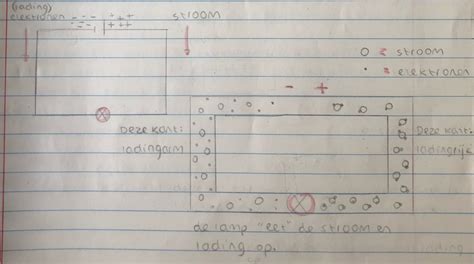 (lading)
elektronen
--- +++
-- +++
stroom
O = stroom
• = elektronen
- +
Deze kant:
ladingarm
Deze kant:
ladingrijk
de lamp "eet" de stroom en
lading op.